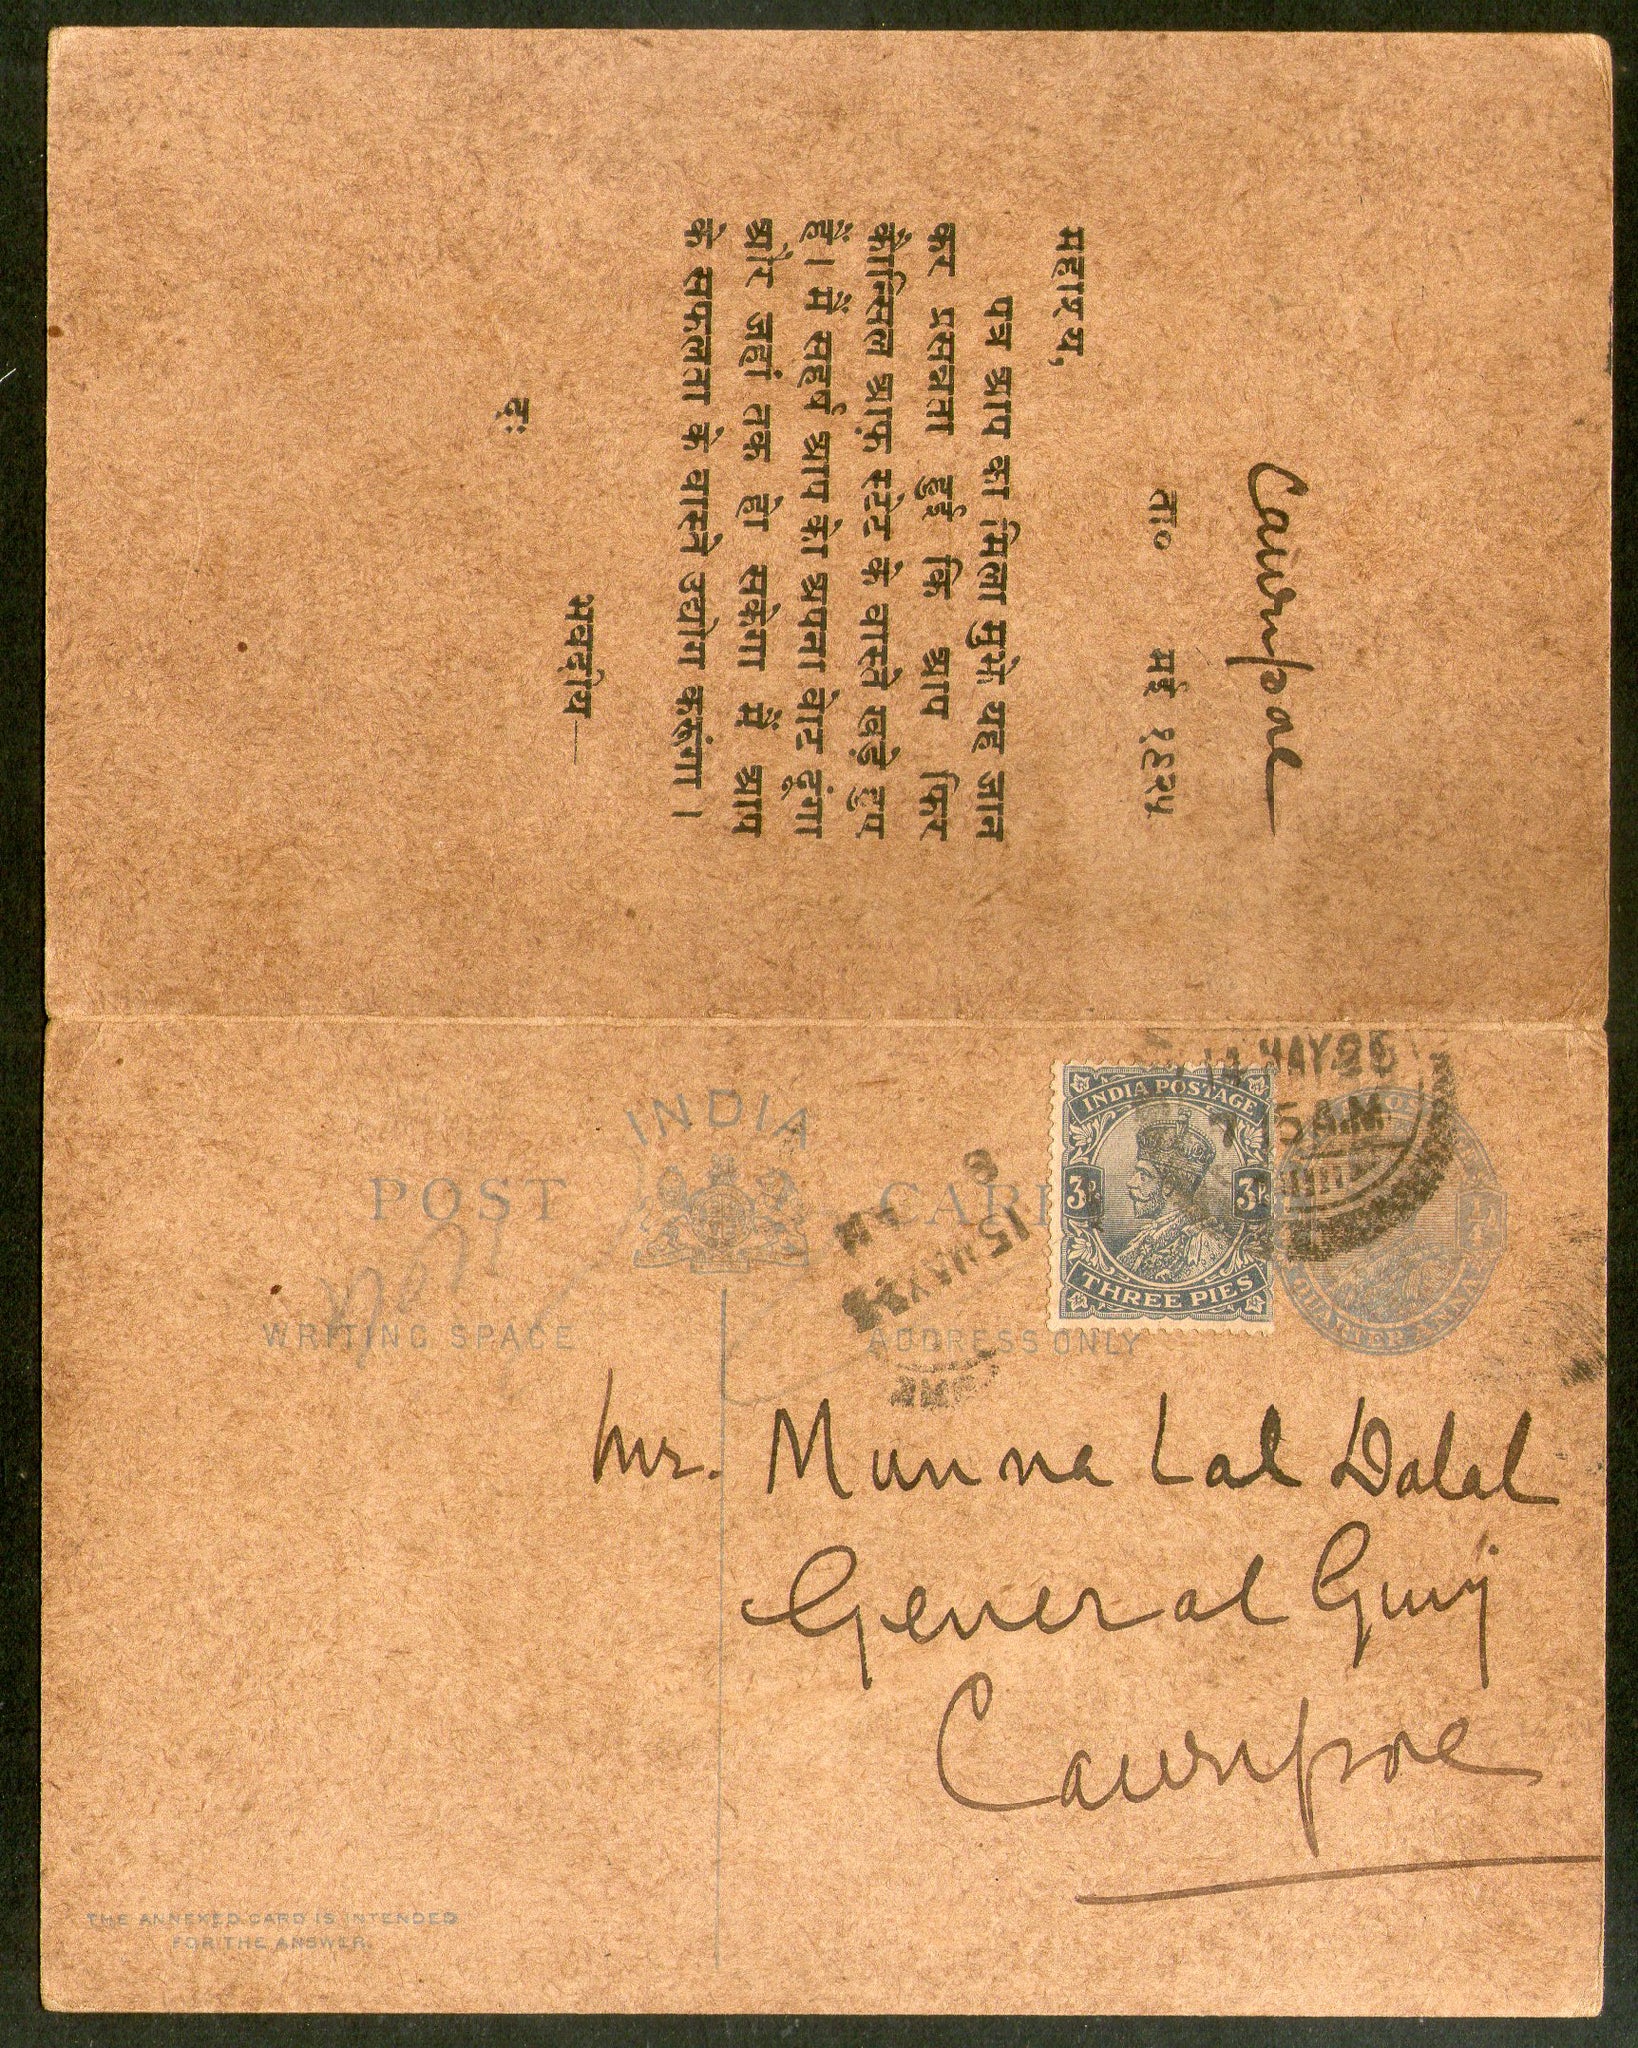 Cawnpore
ता० मई १९२५
महाशय,
पत्र आप का मिला मुझे यह जान
कर प्रसन्नता हुई कि आप फिर
कौन्सिल आफ़ स्टेट के वास्ते खड़े हुए
हैं। मैं सहर्ष आप को अपना वोट दूंगा
और जहां तक हो सकेगा मैं आप
के सफलता के वास्ते उद्योग करूंगा।
भवदीय—
दः
14 MAY 25
7 15 A.M.
INDIA POSTAGE
3 Ps 3 Ps
THREE PIES
INDIA
POST CARD
1/4
QUARTER ANNA
15 MAY 25
AM
WRITING SPACE
ADDRESS ONLY
Mr. Munna Lal Dalal
General Gunj
Cawnpore
THE ANNEXED CARD IS INTENDED
FOR THE ANSWER.